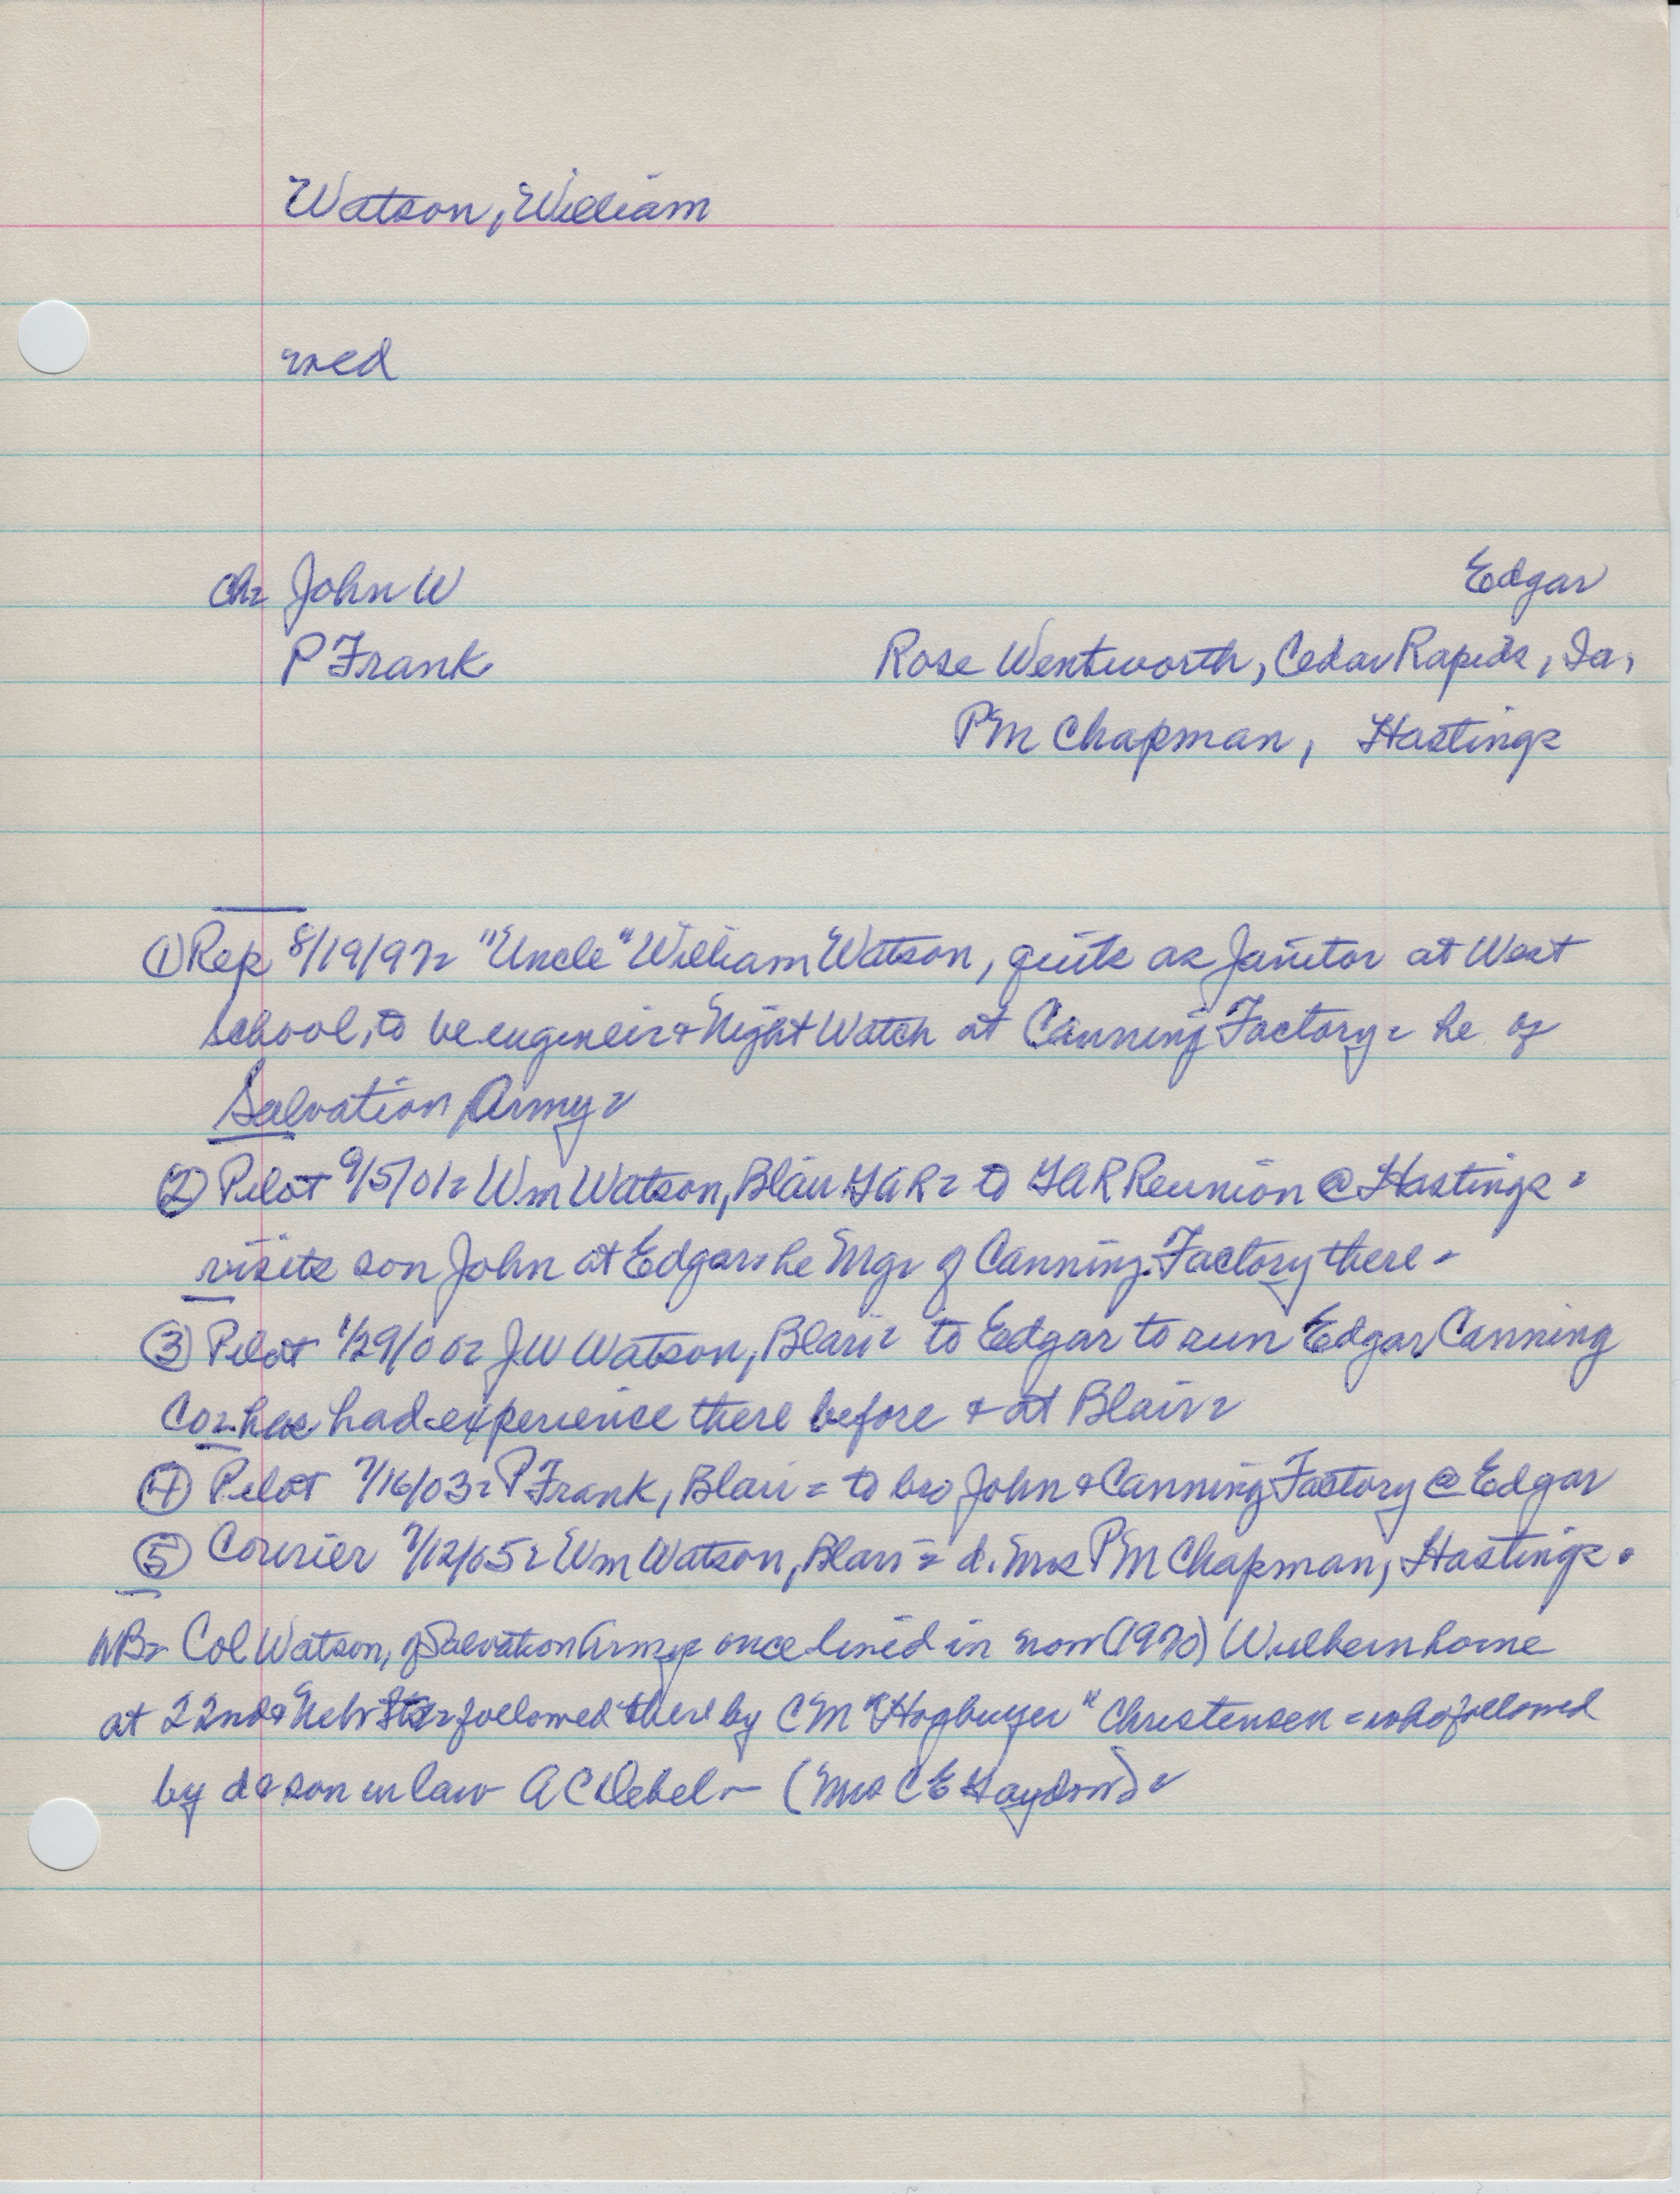 Watson, William
med
Ch- John W Edgar
P Frank Rose Wentworth, Cedar Rapids, Ia,
PM Chapman, Hastings
① Rep 8/19/97- "Uncle" William Watson, quits as Janitor at West
School, to be engineir & Night Watch at Canning Factory- he of
Salvation Army-
② Pilot 9/5/01- Wm Watson, Blair GAR- to GAR Reunion @ Hastings-
visits son John at Edgar- he Mgr of Canning Factory there-
③ Pilot 1/29/00- JW Watson, Blair- to Edgar to run Edgar Canning
Co- has had experience there before & at Blair-
④ Pilot 7/16/03- P Frank, Blair- to bro John & Canning Factory @ Edgar
⑤ Courier 7/12/05- Wm Watson, Blair- d. Mrs PM Chapman, Hastings.
NB- Col Watson, of Salvation Army once lived in now (1970) home
at 22nd & Nebr Sts- followed there by CM "Hogbuyer" Christensen- who followed
by d & son in law A C Debel- (Mrs C E Haydon)-